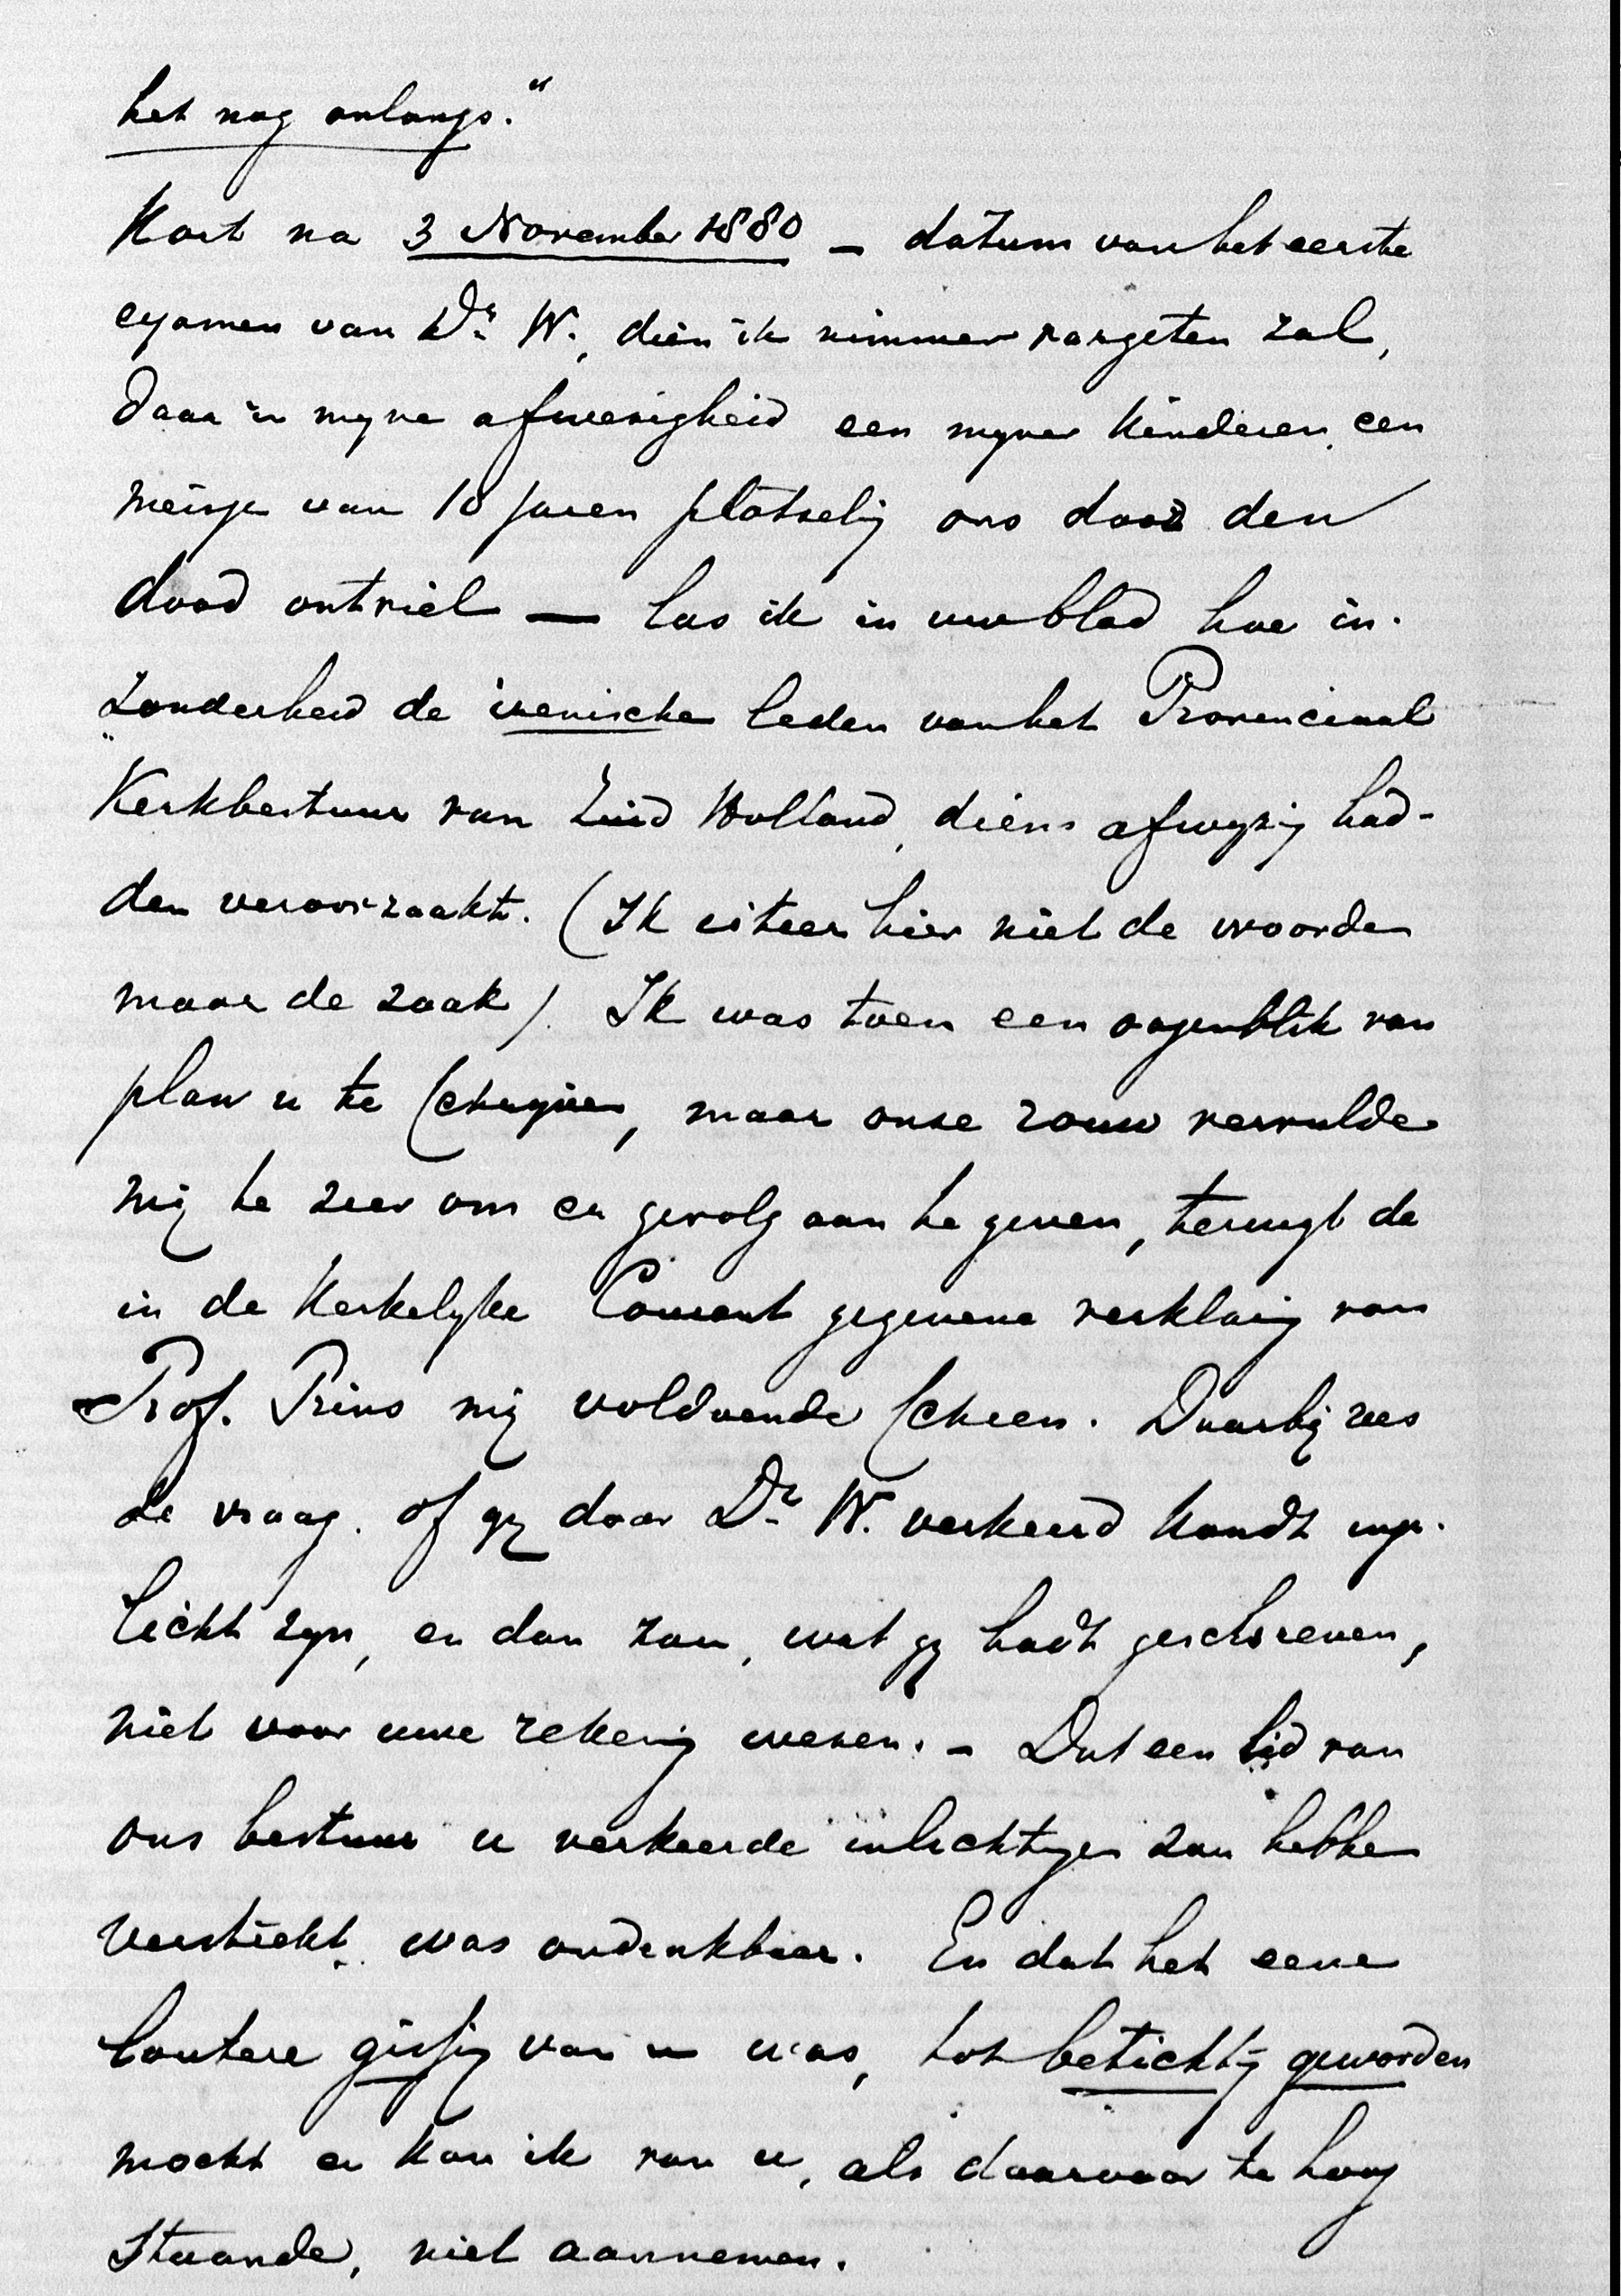 het nog onlangs."
Kort na 3 November 1880 — datum van het eerste
examen van Dr. W., dien ik nimmer vergeten zal,
daar in myne afwezigheid een myner kinderen, een
meisje van 10 jaren plotseling ons door den
dood ontviel — las ik in uw blad hoe in-
"zonderheid de irenische leden van het Provinciaal
Kerkbestuur van Zuid Holland, diens afwyzing had-
den veroorzaakt. (Ik citeer hier niet de woorden
maar de zaak). Ik was toen een oogenblik van
plan u te schryven, maar onze rouw vervulde
mij te zeer om er gevolg aan te geven, terwyl de
in de Kerkelyke Courant gegevene verklaring van
Prof. Prins mij voldoende scheen. Daarbij rees
de vraag, of gy door Dr. W. verkeerd kondt inge-
licht zyn, en dan zou, wat gy hadt geschreven,
niet voor uwe rekening wezen. – Dat een lid van
ons bestuur u verkeerde inlichtingen zou hebben
verstrekt, was ondenkbaar. En dat het eene
loutere gissing van u was, tot betichting geworden
mocht en kon ik van u, als daarvoor te hoog
staande, niet aannemen.